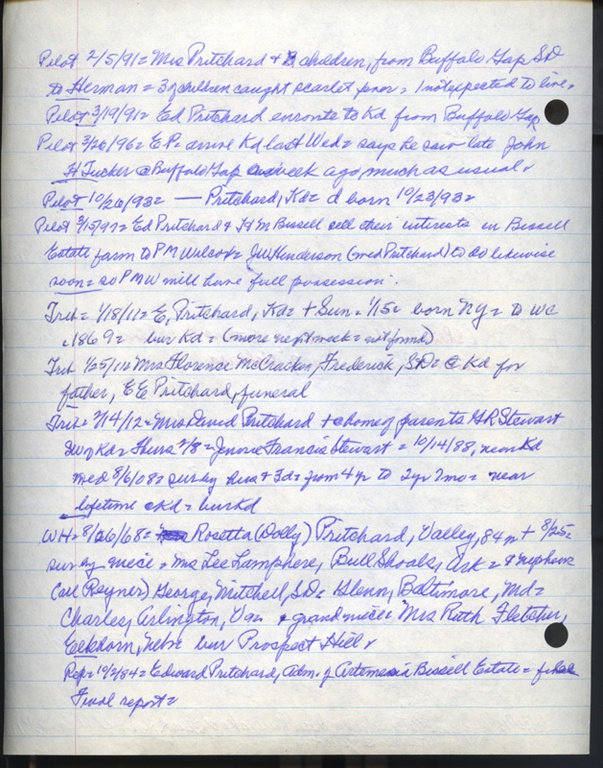 Pilot 2/5/91= Mrs Pritchard + children, from Buffalo Gap SD
to Herman = 3 of children caught scarlet fever = 1 not expected to live.
Pilot 3/19/91= Ed Pritchard enroute to Kd from Buffalo Gap
Pilot 3/26/96= E.P. arrive Kd last Wed= says he saw late John
H Tucker @ Buffalo Gap week ago, much as usual.
Pilot 10/26/93= — Pritchard, Kd= d born 10/23/93=
Pilot 3/15/97= Ed Pritchard & Bissell sell their interests in Bissell
Estate farm to PM Wilcox= JW Henderson (med Pritchard) to do likewise
soon= so PMW will have full possession.
Trib= 1/18/11= E, Pritchard, Kd= + Sun= 1/15= born NY= to WC
c1869= bur Kd= (more next week= not found)
Trib 1/25/11= Mrs Florence McCracken, Frederick, SD= @ Kd for
father, E E Pritchard, funeral
Trib= 3/14/12= Mrs David Pritchard + @ home of parents GR Stewart
SW of Kd= Thurs 3/8= Jennie Francis Stewart= 10/14/88, near Kd
med 8/6/08= sur by hus + 3 d= from 4 yr to 2 yr 7 mo= near
lifetime @ Kd= bur Kd
WH= 8/26/68= Rosetta (Dolly) Pritchard, Valley, 84 + 8/25=
sur by niece= Mrs Lee Lamphere, Bull Shoals, Ark= 4 nephews
(all Reyner) George, Mitchell, SD= Glenn, Baltimore, Md=
Charles, Arlington, Va= + grandniece= Mrs Ruth Fletcher,
Elkhorn, Neb= bur Prospect Hill.
Rep= 10/2/84= Edward Pritchard, Adm. of Artemesia Bissell Estate=
Final report=